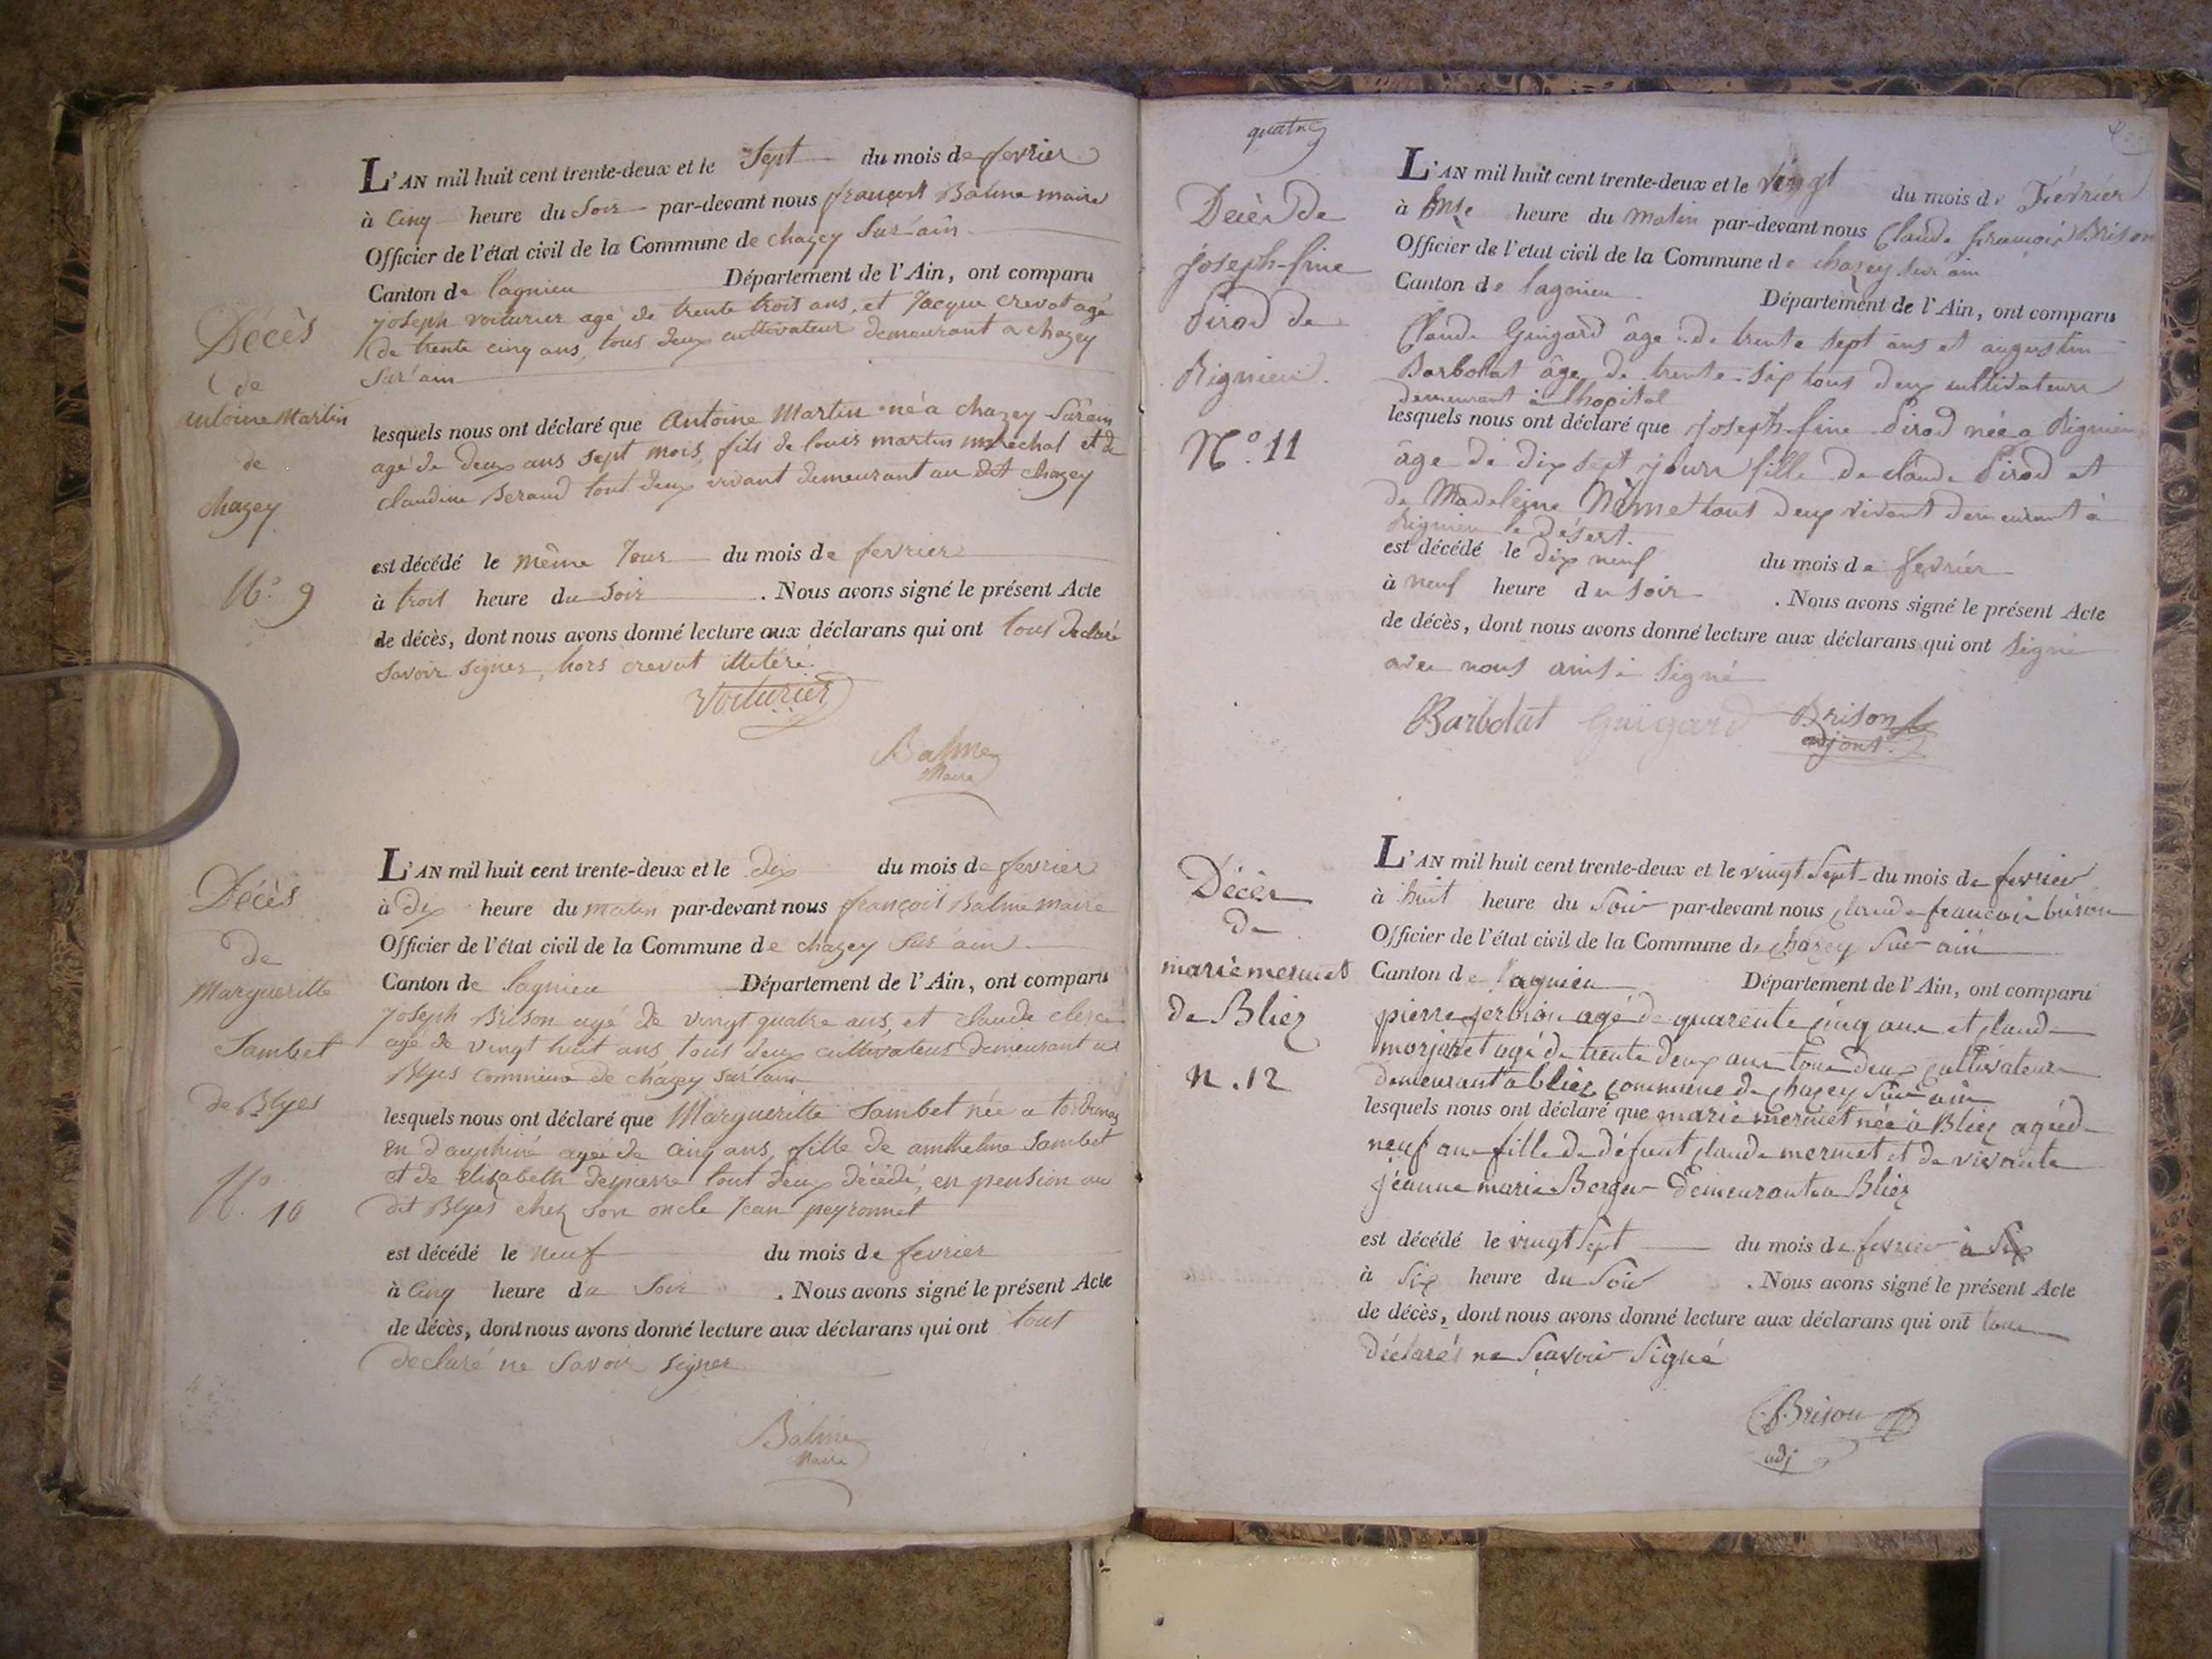 Décès
de
antoine Martin
de
chazey
N.° 9
L'AN mil huit cent trente-deux et le Sept du mois de fevrier
à Cinq heure du Soir par-devant nous françois Balme maire
Officier de l'état civil de la Commune de chazey Sur ain
Canton de lagnieu Département de l'Ain, ont comparu
joseph voiturier agé de trente trois ans, et Jacque crevat agé
de trente cinq ans, tous deux cultivateur demeurant a chazey
Sur ain
lesquels nous ont déclaré que Antoine Martin né a chazey Sur ain
agé de deux ans sept mois, fils de louis martin maréchal et de
claudine Beraud tout deux vivant demeurant au dit chazey
est décédé le même Jour du mois de fevrier
à trois heure du Soir . Nous avons signé le présent Acte
de décès, dont nous avons donné lecture aux déclarans qui ont tous declaré
savoir signer, hors crevat illetéré.
Voiturier
Balme
Maire
Décès
de
Margueritte
Sambet
de Blyes
N.° 10
L'AN mil huit cent trente-deux et le dix du mois de fevrier
à Dix heure du matin par-devant nous françois Balme maire
Officier de l'état civil de la Commune de chazey Sur ain
Canton de lagnieu Département de l'Ain, ont comparu
joseph Brison agé de vingt quatre ans, et claude clerc
agé de vingt huit ans, tous deux cultivateur demeurant a
Blyes commune de chazey Sur l'ain
lesquels nous ont déclaré que Margueritte Sambet née a
en dauphiné agée de cinq ans, fille de anthelme Sambet
et de elizabeth depierre tout deux décédé, en pension au
dit Blyes chez son oncle Jean peyronnet
est décédé le neuf du mois de fevrier
à Cinq heure du Soir . Nous avons signé le présent Acte
de décès, dont nous avons donné lecture aux déclarans qui ont tout
declaré ne Savoir signer
Balme
Maire
quatre
Décès de
joseph-fine
Pirod de
Rignieu.
N.° 11
L'AN mil huit cent trente-deux et le vingt du mois de Février
à onze heure du matin par-devant nous Claude francois Brison
Officier de l'etat civil de la Commune de chazey sur ain
Canton de lagnieu Département de l'Ain, ont comparu
Claude Guigard âge de trente sept ans et augustin
Barbolat âge de trente-six tous deux cultivateurs
demeurant a lhopital
lesquels nous ont déclaré que joseph-fine Pirod née a Rignieu
âge de dix sept jours fille de claude Pirod et
de Madeleine tous deux vivant demeurant à
Rignieu le désert.
est décédé le dix neuf du mois de fevrier
à neuf heure du soir . Nous avons signé le présent Acte
de décès, dont nous avons donné lecture aux déclarans qui ont signé
avec nous ainsi signé
Barbolat Guigard Brison
adjont.
Décès
de
marie mermet
de Bliez
N. 12
L'AN mil huit cent trente-deux et le vingt Sept du mois de fevrier
à huit heure du Soir par-devant nous claude francois brison
Officier de l'état civil de la Commune de chazey Sur ain
Canton de lagnieu Département de l'Ain, ont comparu
pierre agé de quarente cinq ans et claude
morjaret agé de trente deux ans tous deux cultivateur
demeurant a bliez commune de chazey Sur ain
lesquels nous ont déclaré que marie mermet née à Bliez agée de
neuf ans fille de défunt claude mermet et de vivante
jeanne marie Berger demeurant a Bliez
est décédé le vingt Sept du mois de fevrier a Six
à Six heure du Soir . Nous avons signé le présent Acte
de décès, dont nous avons donné lecture aux déclarans qui ont tous
déclarés ne Scavoir Signé
Brison
adj